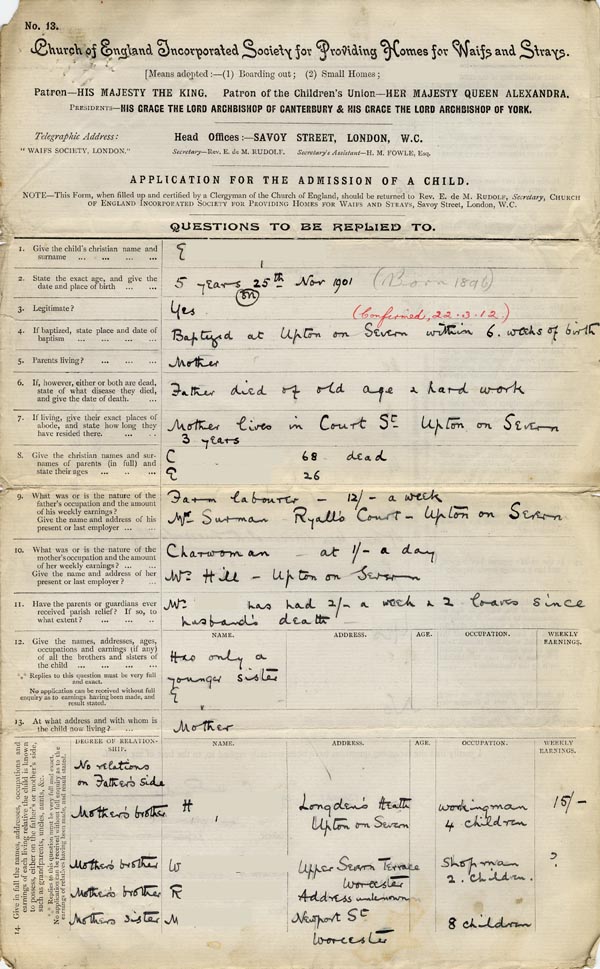 No. 13.
Church of England Incorporated Society for Providing Homes for Waifs and Strays.
[Means adopted:—(1) Boarding out; (2) Small Homes;
Patron—HIS MAJESTY THE KING. Patron of the Children's Union—HER MAJESTY QUEEN ALEXANDRA.
PRESIDENTS—HIS GRACE THE LORD ARCHBISHOP OF CANTERBURY & HIS GRACE THE LORD ARCHBISHOP OF YORK.
Telegraphic Address:
"WAIFS SOCIETY, LONDON."
Head Offices:—SAVOY STREET, LONDON, W.C.
Secretary—Rev. E. de M. RUDOLF. Secretary's Assistant—H. M. FOWLE, Esq.
APPLICATION FOR THE ADMISSION OF A CHILD.
NOTE—This Form, when filled up and certified by a Clergyman of the Church of England, should be returned to Rev. E. de M. RUDOLF, Secretary, CHURCH
OF ENGLAND INCORPORATED SOCIETY FOR PROVIDING HOMES FOR WAIFS AND STRAYS, Savoy Street, London, W.C.
QUESTIONS TO BE REPLIED TO.
1. Give the child's christian name and
surname ... ... ...
E
2. State the exact age, and give the
date and place of birth ... ...
5 years on 25th Nov 1901 (Born 1896)
3. Legitimate? ... ... ...
Yes (Confirmed, 22.3.12.)
4. If baptized, state place and date of
baptism ... ... ...
Baptized at Upton on Severn within 6. weeks of birth
5. Parents living? ... ... ...
Mother
6. If, however, either or both are dead,
state of what disease they died,
and give the date of death. ...
Father died of old age & hard work
7. If living, give their exact places of
abode, and state how long they
have resided there. ... ...
Mother lives in Court St Upton on Severn
3 years
8. Give the christian names and sur-
names of parents (in full) and
state their ages ... ... ...
C 68 dead
E 26
9. What was or is the nature of the
father's occupation and the amount
of his weekly earnings?
Give the name and address of his
present or last employer ... ...
Farm labourer – 12/- a week
Mr Surman Ryall's Court – Upton on Severn
10. What was or is the nature of the
mother's occupation and the amount
of her weekly earnings? ... ...
Give the name and address of her
present or last employer?
Charwoman – at 1/- a day
Mrs Hill – Upton on Severn
11. Have the parents or guardians ever
received parish relief? If so, to
what extent? ... ... ...
Mrs has had 2/- a week & 2 loaves since
husband's death –
12. Give the names, addresses, ages,
occupations and earnings (if any)
of all the brothers and sisters of
the child ... ... ...
*** Replies to this question must be very full
and exact.
No application can be received without full
enquiry as to earnings having been made, and
result stated.
NAME. ADDRESS. AGE. OCCUPATION. WEEKLY
EARNINGS.
Has only a
younger sister
E
13. At what address and with whom is
the child now living? ... ...
Mother
14. Give in full the names, addresses, occupations and
earnings of each living relative the child is known
to possess, either on the father's or mother's side,
such as grandparents, uncles, aunts, &c.
*** Replies to this question must be very full and exact.
No application can be received without full enquiry as to
earnings of relatives having been made, and result stated.
DEGREE OF RELATION-
SHIP. NAME. ADDRESS. AGE. OCCUPATION. WEEKLY
EARNINGS.
No relations
on Father's side
Mother's brother H Longden's Heath workingman 15/-
Upton on Severn 4 children
Mother's brother W Upper Severn Terrace Shopman ?
Worcester 2. children.
Mother's brother R Address unknown
Mother's sister M Newport St 8 children
Worcester